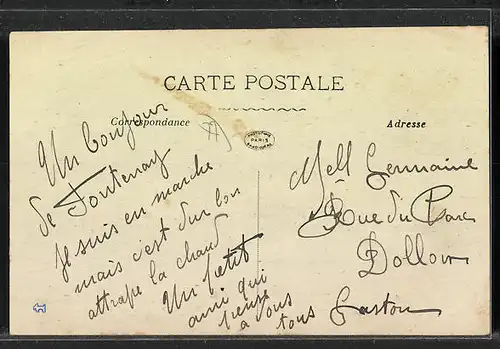 CARTE POSTALE
Correspondance
Adresse
PARIS
Un bonjour
de Fontenay
Je suis en marche
mais c'est dur on
attrape la chaud
Un petit
ami qui
pense
a vous
tous Gaston
Mell Germaine
Rue du Parc